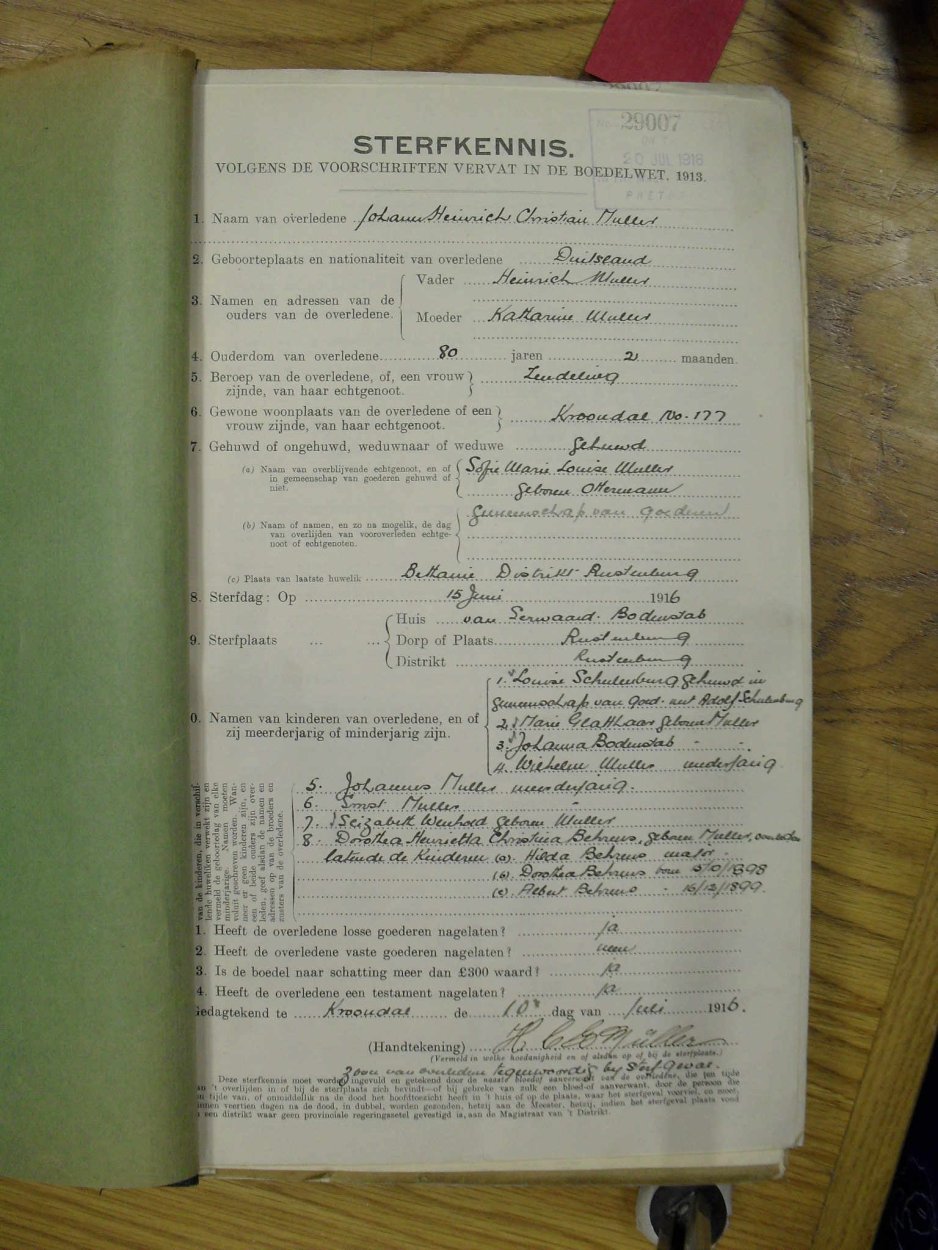 29007
20 JUL 1916
STERFKENNIS.
VOLGENS DE VOORSCHRIFTEN VERVAT IN DE BOEDELWET, 1913.
1. Naam van overledene Johann Heinrich Christian Muller
2. Geboorteplaats en nationaliteit van overledene Duitsland
3. Namen en adressen van de ouders van de overledene.
Vader Heinrich Muller
Moeder Katharine Muller
4. Ouderdom van overledene 80 jaren 2 maanden.
5. Beroep van de overledene, of, een vrouw zijnde, van haar echtgenoot. Zendeling
6. Gewone woonplaats van de overledene of een vrouw zijnde, van haar echtgenoot. Kroondal No. 177
7. Gehuwd of ongehuwd, weduwnaar of weduwe gehuwd
(a) Naam van overblijvende echtgenoot, en of in gemeenschap van goederen gehuwd of niet.
Sofie Marie Louise Muller
geboren Ottermann
gemeenschap van goederen
(b) Naam of namen, en zo na mogelik, de dag van overlijden van vooroverleden echtgenoot of echtgenoten.
(c) Plaats van laatste huwelik Bethanie Distrikt Rustenburg
8. Sterfdag: Op 15 Juni 1916
9. Sterfplaats
Huis van Serwaard Bodenstab
Dorp of Plaats Rustenburg
Distrikt Rustenburg
0. Namen van kinderen van overledene, en of zij meerderjarig of minderjarig zijn.
1. Louise Schulenburg gehuwd in
gemeenschap van goed. met Adolf Schulenburg
2. Marie Glatthaar geboren Muller
3. Johanna Bodenstab " "
4. Wilhelm Muller meerderjarig
5. Johannes Muller meerderjarig.
6. Ernst Muller "
7. Elizabeth Wenhold geboren Muller
8. Dorothea Henrietta Christina Behrens, geboren Muller,
latende de kinderen (a) Hilda Behrens major
(b) Dorothea Behrens /1898
(c) Albert Behrens 16/12/1899
van de kinderen, die in verschil-
lende huweliken verwekt zijn en
vermeld de geboortedag van elke
minderjarige. Namen moeten
voluit geschreven worden. Wan-
neer er geen kinderen zijn, en
een of beide ouders zijn over-
leden, geef alsdan de namen en
adressen op van de broeders en
zusters van de overledene.
1. Heeft de overledene losse goederen nagelaten? ja
2. Heeft de overledene vaste goederen nagelaten? neen
3. Is de boedel naar schatting meer dan £300 waard? ja
4. Heeft de overledene een testament nagelaten? ja
Gedagtekend te Kroondal de 10 dag van Juli 1916.
(Handtekening) H. C. Müller
(Vermeld in welke hoedanigheid en of aldan op of bij de sterfplaats.)
Zoon van overledene tegenwoordig bij sterfgeval.
Deze sterfkennis moet worden ingevuld en getekend door de naaste bloed of aanverwant van de overledene, die ten tijde
van 't overlijden in of bij de sterfplaats zich bevindt—of bij gebreke van zulk een bloed of aanverwant, door de persoon die
ten tijde van, of onmiddellik na de dood het hoofdtoezicht heeft in 't huis of op de plaats, waar het sterfgeval voorviel, en moet,
binnen veertien dagen na de dood, in dubbel, worden gezonden, hetzij aan de Meester, hetzij, indien het sterfgeval plaats vond
in een distrikt waar geen provinciale regeringszetel gevestigd is, aan de Magistraat van 't Distrikt.